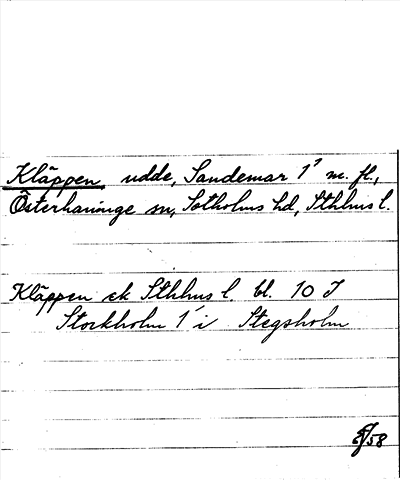 Kläppen, udde, Sandemar 1³ m. fl.,
Österhaninge sn, Sotholms hd, Sthlms l.
Kläppen ek Sthlms l. bl. 10 J
Stockholm 1' i Stegsholm
/58